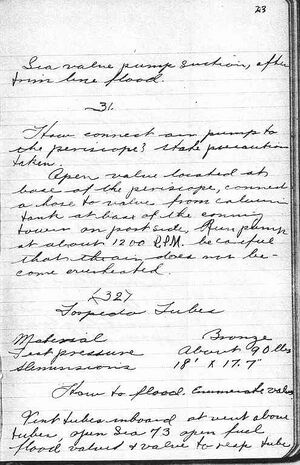 23
Sea valve pump suction, after
trim line flood.
31
How connect air pump to
the periscope? State precaution
taken.
Open valve located at
base of the periscope, connect
a hose to valve, from calcium
tank at base of the conning
tower on port side, Run pump
at about 1200 R.P.M. be careful
that the air does not be-
come overheated.
(32)
Torpedo Tubes
Material Bronze
Test pressure About 90 lbs
Dimensions 18' x 17.7"
How to flood. Enumerate valves
Vent tubes inboard at vent above
tubes, open Sea 73 open fuel
flood valves & valve to reap tube